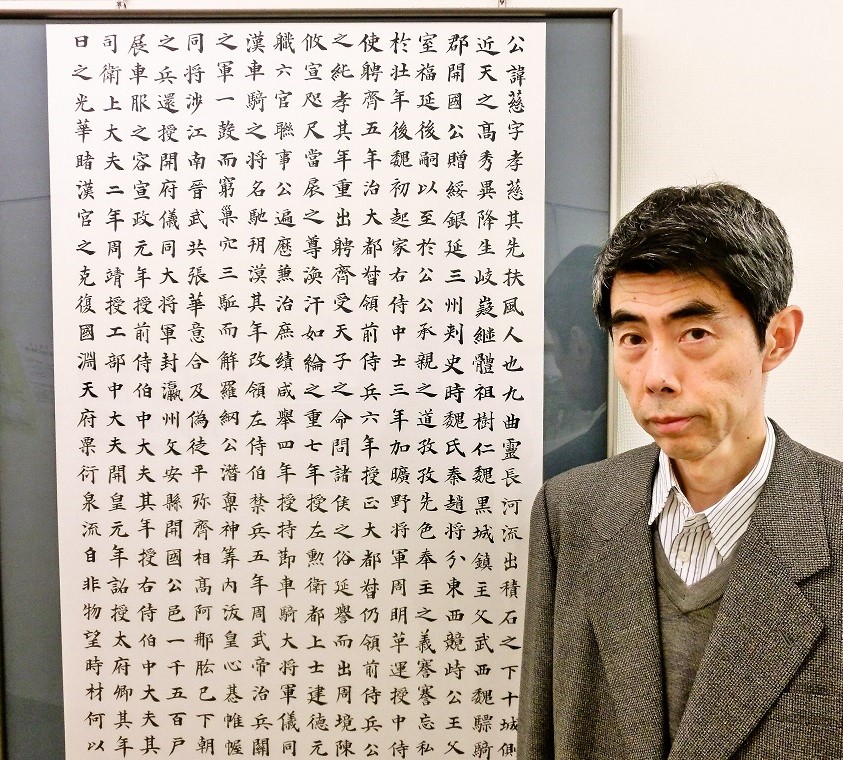 公諱慈字孝慈其先扶風人也九曲靈長河流出積石之下十城側
近天之髙秀異降生岐嶷繼體祖樹仁魏黑城鎮主父武西魏驃騎
郡開國公贈綏銀延三州刺史時魏氏秦趙將分東西競峙公王父
室福延後嗣以至於公公承親之道孜孜先色奉主之義謇謇忘私
於壯年後魏初起家右侍中士三年加曠野將軍周明革運授中侍
使聘齊五年治大都督領前侍兵六年授正大都督仍領前侍兵公
之純孝其年重出聘齊受天子之命問諸侯之俗延譽而出周境陳
攸宣咫尺當扆之尊渙汗如綸之重七年授左勲衛都上士建德元
職六官聯事公遍歷兼治庶績咸舉四年授持節車騎大將軍儀同
漢車騎之將名馳朔漠其年改領左侍伯禁兵五年周武帝治兵關
之軍一鼓而窮巢穴三駈而解羅網公潛稟神筭內沃皇心惎帷幄
同將涉江南晉武共張華意合及偽徒平殄齊相髙阿那肱已下朝
之兵還授開府儀同大將軍封瀛州文安縣開國公邑一千五百戶
展車服之容宣政元年授前侍伯中大夫其年授右侍伯中大夫其
司衛上大夫二年周靖授工部中大夫開皇元年詔授太府卿其年
日之光華睹漢官之克復國淵天府衍泉流自非物望時材何以